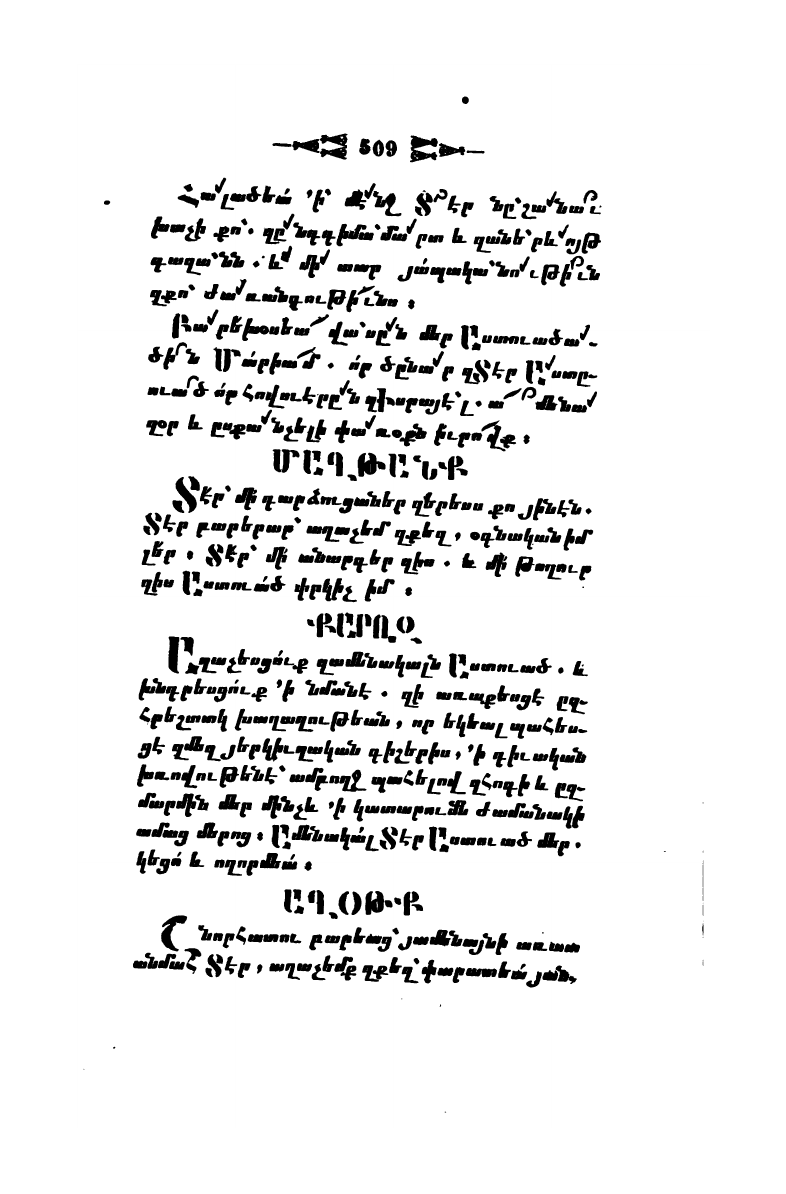 509
Հալածեա՛ ՚ի մէնջ Տէր նըշանաւ
խաչի քո՝. զընգգիմամարտ և զաներևոյթ
գազանն. և մի տար յապականութիւն
զքո՝ ժառանգութիւնս։
Բարեխօսեա վասըն մեր Աստուածա-
ծին Մարիամ. ո՛ր ծընար զՏէր Աստը-
ուած ո՛ր հովուէրըն զԻսրայէլ. ամենա
զօր և ըսքանչելի փառօքն իւրովք։
ՄԱՂԹԱՆՔ
Տէր՝ մի դարձուցաներ զերեսս քո յինէն.
Տէր բարերար՝ աղաչեմ զքեզ, օգնական իմ
լեր. Տէր՝ մի անարգեր զիս. և մի թողուր
զիս Աստուած փրկիչ իմ։
ՔԱՐՈԶ
Աղաչեսցուք զամենակալն Աստուած. և
խնդրեսցուք ՚ի նմանէ. զի առաքեսցէ ըզ-
հրեշտակ խաղաղութեան, որ եկեալ պահես-
ցէ զմեզ յերկիւղական գիշերիս, ՚ի դիւական
խռովութենէ՝ ամբողջ պահելով զհոգի և ըզ-
մարմին մեր մինչև ՚ի կատարումն ժամանակի
ամաց մերոց։ Ամենակալ Տէր Աստուած մեր.
կեցո՛ և ողորմեա՛։
ԱՂՕԹՔ
Շնորհատու բարեաց՝ յամենայնի առատ
անմահ Տէր, աղաչեմք զքեզ՝ փարատեա՛ յան,